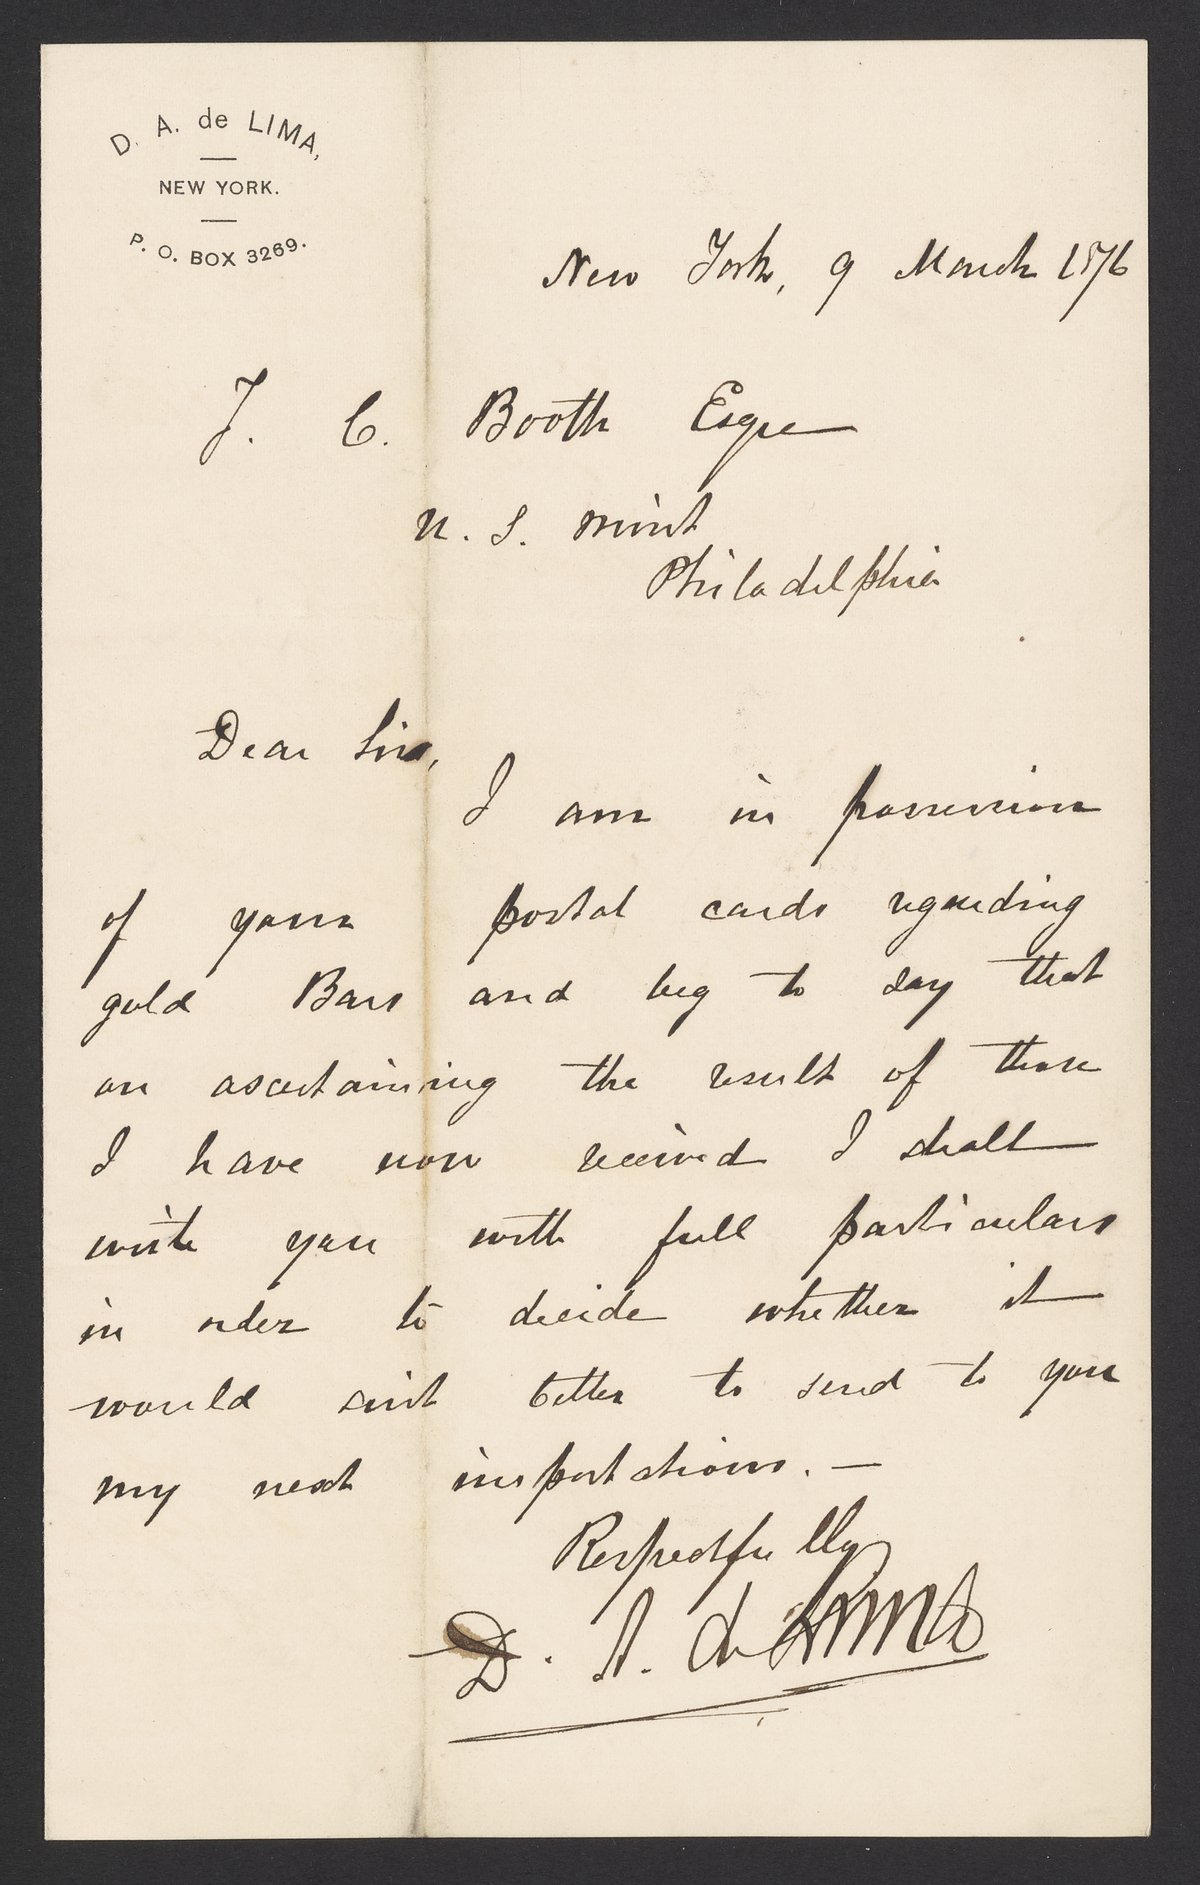 D. A. de LIMA,
NEW YORK.
P. O. BOX 3269.
New York, 9 March 1876
J. C. Booth Esqre
U. S. Mint
Philadelphia
Dear Sir,
I am in possession
of your postal cards regarding
gold Bars and beg to say that
on ascertaining the result of those
I have now received I shall
write you with full particulars
in order to decide whether it
would suit better to send to you
my next importations. —
Respectfully
D. A. de Lima